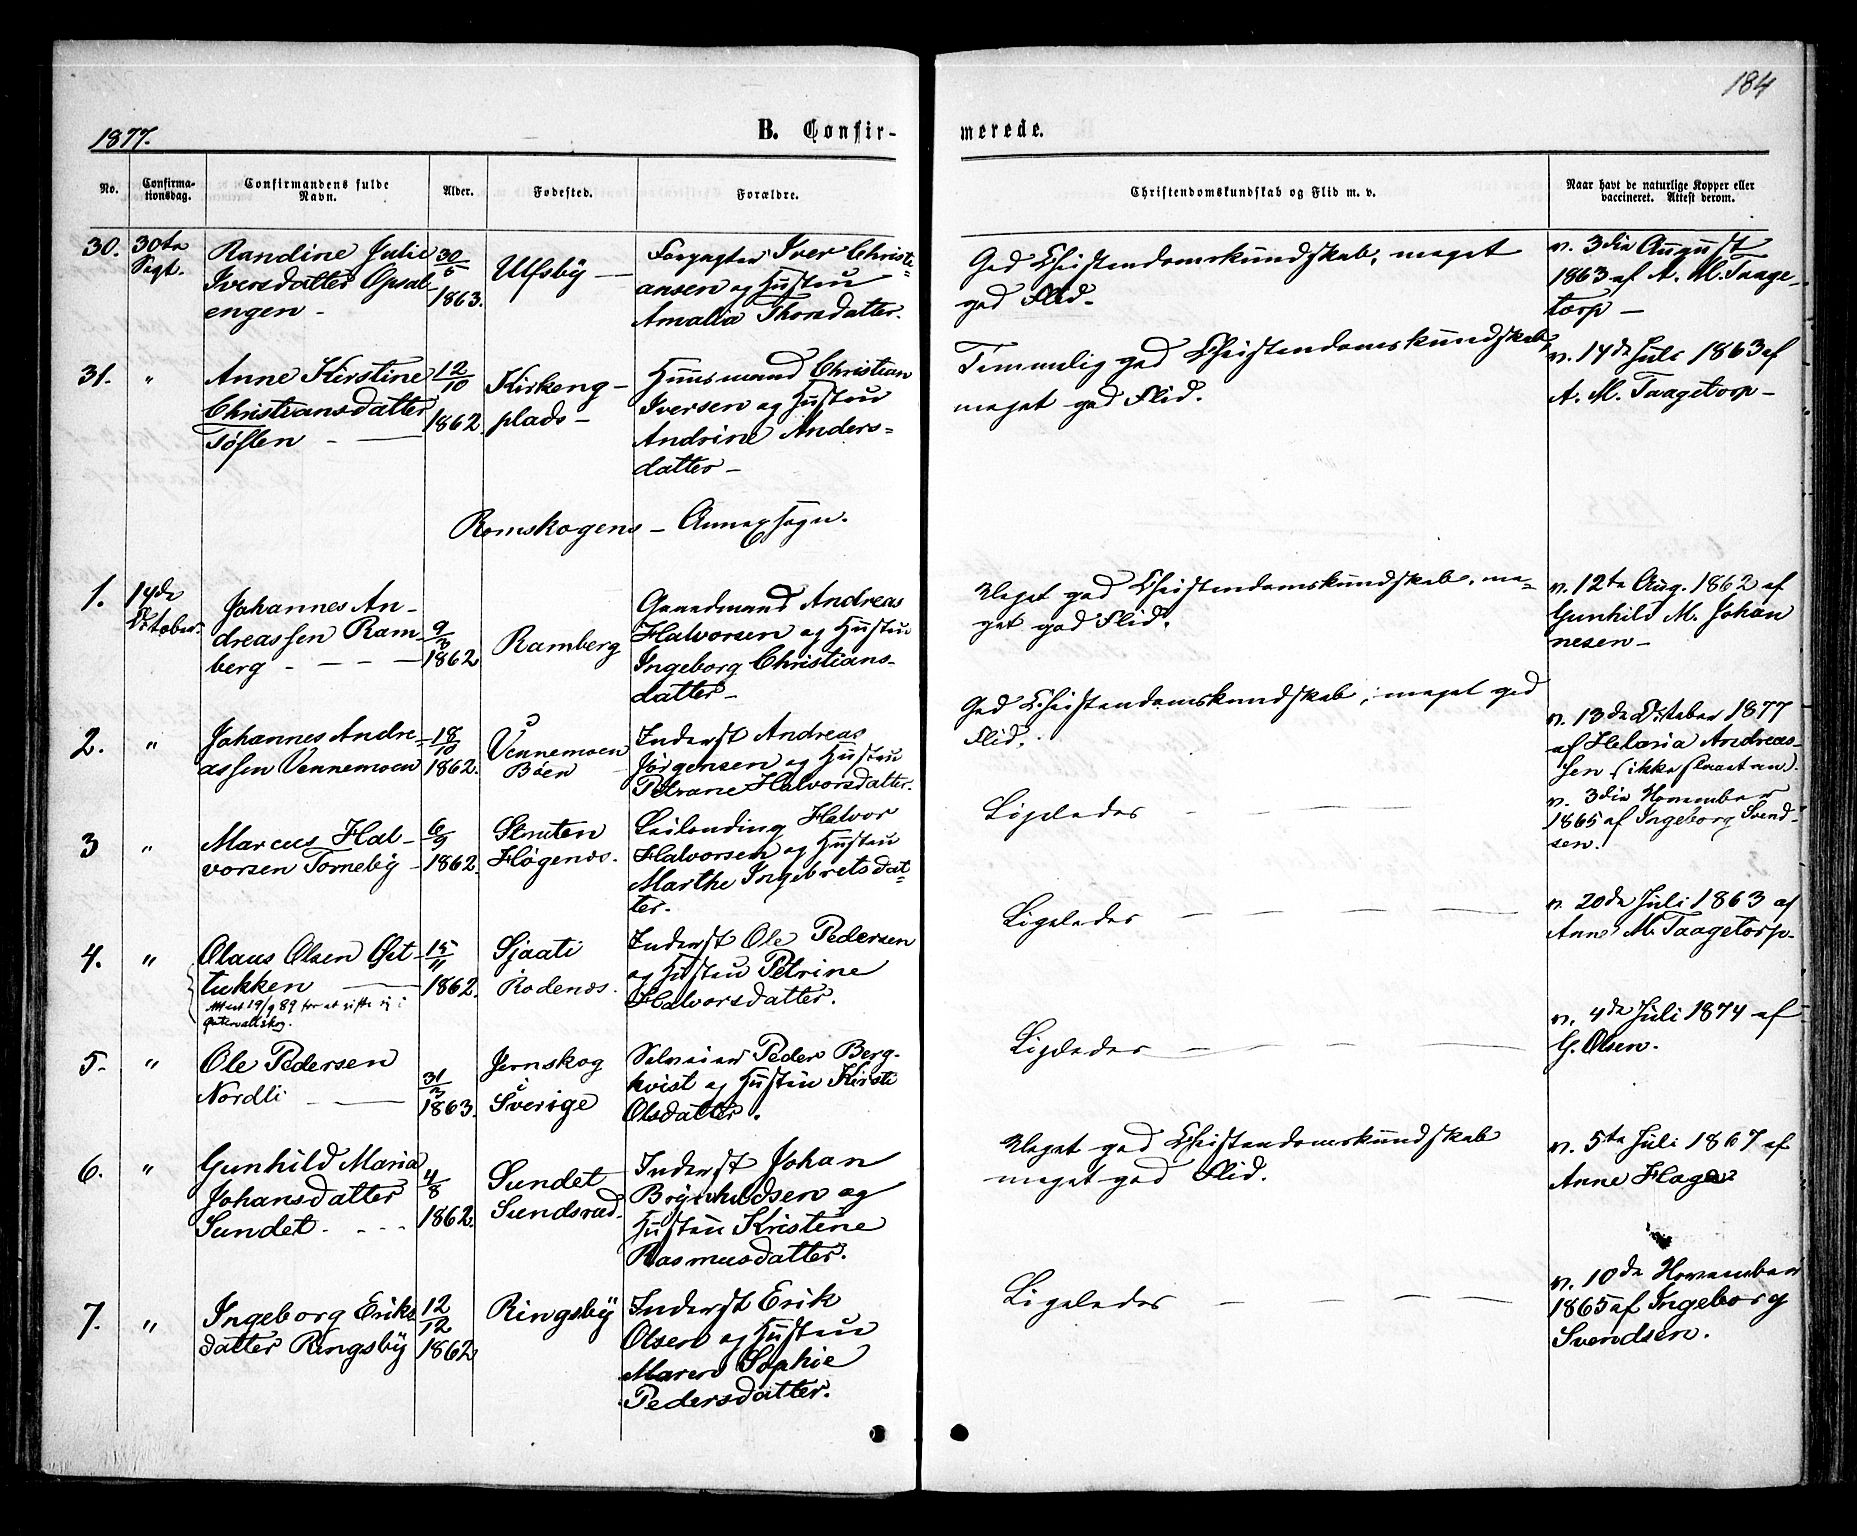 184
1877.
B. Confir-
merede.
No.
Confirma-
tionsdag.
Confirmandens fulde
Navn.
Alder.
Fødested.
Forældre.
Christendomskundskab og Flid m. v.
Naar havt de naturlige Kopper eller
vaccineret. Attest derom.
30.
30te
Sept.
Randine Julie
Iversdatter Opsal
engen -
30/5
1863.
Ulfsby -
Forpagter Iver Christi=
ansen og Hustru
Amalia Thorsdatter.
God Christendomskundskab, meget
god Flid.
v. 3die August
1863 af A. M. Taage-
torp -
31.
"
Anne Kirstine
Christiansdatter
Tøflen -
12/10
1862.
Kirkeng -
plads -
Huusmand Christian
Iversen og Hustru
Andrine Anders-
datter -
Temmelig god Christendomskundskab,
meget god Flid.
v. 14de Juli 1863 af
A. M. Taagetorp -
Romskogens - Annexsogn.
1.
14de
October.
Johannes An-
dreassen Ram
berg -
9/3
1862
Ramberg
Gaardmand Andreas
Halvorsen og Hustru
Ingeborg Christians-
datter -
Meget god Christendomskundskab, me-
get god Flid.
v. 12te Aug. 1862 af
Gunhild M. Johan
nesen -
2.
"
Johannes Andre-
assen Vennemoen
18/10
1862.
Vennemoen
Böen
Inderst Andreas
Jörgensen og Hustru
Petrane Halvorsdatter.
God Christendomskundskab, meget god
Flid.
v. 13de October 1877
af Helaria Andreas-
sen (ikke slaaet an).
3
"
Marcus Hal-
vorsen Torneby -
6/9
1862.
Høgenæs.
Leilending Halvor
Halvorsen og Hustru
Marthe Ingebretsdat-
ter.
Ligeledes
v. 3die November
1865 af Ingeborg Svend-
sen.
4.
"
Olaus Olsen Øst
tukken
Attest 19/9 89 for at gifte sig i
Østervallskog.
15/11
1862.
Sjaati
Rodenæs.
Inderst Ole Pedersen
og Hustru Petrine
Halvorsdatter.
Ligeledes
v. 20de Juli 1863 af
Anne M. Taagetorp.
5.
"
Ole Pedersen
Nordli
31/3
1863.
Jernskog
i
Sverige
Selveier Peder Berg-
kvist og Hustru Kirsti
Olsdatter.
Ligeledes
v. 4de Juli 1874 af
G. Olsen.
6.
"
Gunhild Maria
Johansdatter
Sundet.
4/8
1862.
Sundet
Sundsrud.
Inderst Johan
Brynhildsen og
Hustru Kristine
Rasmusdatter.
Meget god Christendomskundskab
meget god Flid.
v. 5te Juli 1867 af
Anne Hagen
7.
"
Ingeborg Eriks
datter Ringsby
12/12
1862
Ringsby
Inderst Erik
Olsen og Hustru
Maren Sophie
Pedersdatter.
Ligeledes
v. 10de November
1865 af Ingeborg
Svendsen.